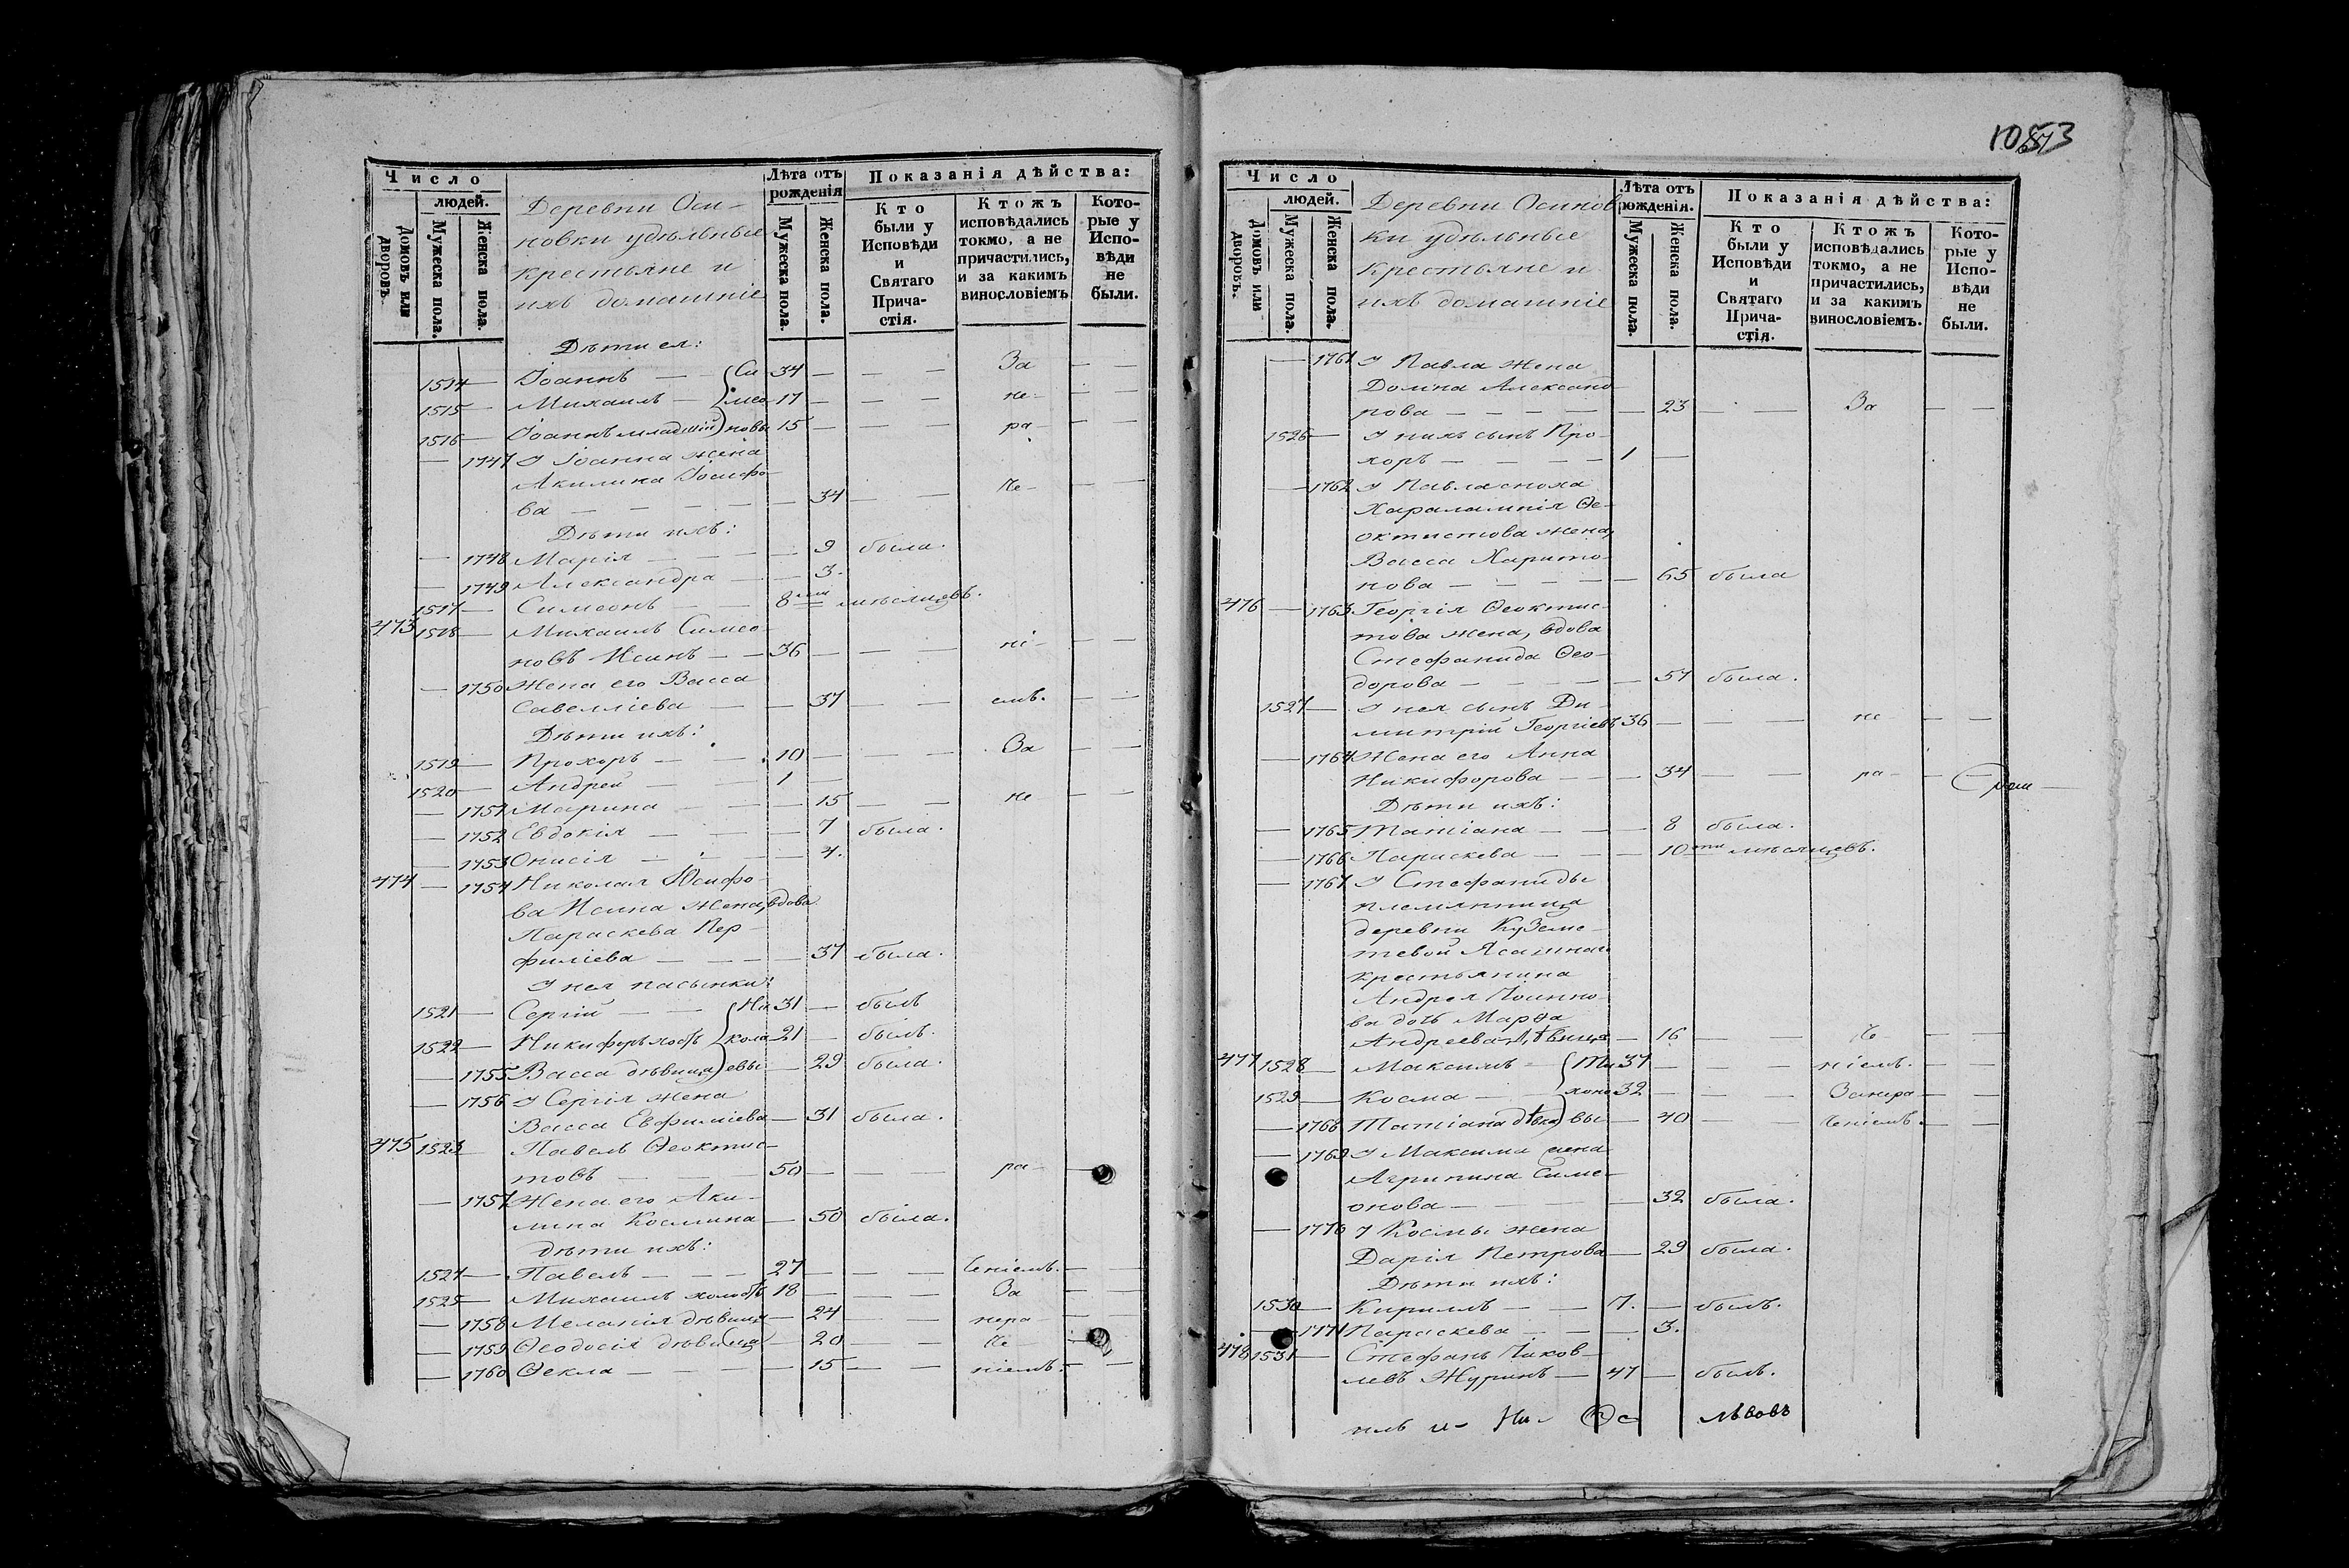 Число
людей.
Домовъ или дворовъ.
Мужеска пола.
Женска пола.
Деревни Оси-
новки удѣльные
крестьяне и
ихъ домашніе
Лѣта отъ рожденія
Мужеска пола.
Женска пола.
Показанія дѣйства:
Кто были у Исповѣди и Святаго Прича-стія.
Ктожъ исповѣдались токмо, а не причастились, и за какимъ винословіемъ
Кото-рые у Испо-вѣди не были.
Дѣти ея:
1514 — Іоаннъ — — Си 34 — — — За — —
1515 — Михаилъ — мео 17 — — — не — —
1516 — Іоаннъ младшій новы 15 — — — ра — —
— 1747 У Іоанна жена
Акилина Іосифо-
ва — — — — — 34 — — че — — —
Дѣти ихъ:
— 1748 Марія — — — 9 была.
— 1749 Александра — — 3.
1517 — Симеонъ — — 8 мѣсяцевъ.
473 1518 — Михаилъ Симео-
новъ Исинъ — — 36 — — — ні — — —
— 1750 Жена его Васса
Савелліева — — 37 — — емъ. — —
Дѣти ихъ:
1519 — Прохоръ — — 10 — — — За — —
1520 — Андрей — — 1 —
— 1751 Марина — — — 15 — — не — —
— 1752 Евдокія — — — 7 была.
— 1753 Онисія — — — 4.
474 — 1754 Николая Іосифо-
ва Исина жена, вдова
Параскева Пер-
филіева — — — — 37 была.
У нея пасынки:
1521 — Сергій — — Ни 31 — былъ
1522 — Никифоръ холос. кола 21 — былъ.
— 1755 Васса дѣвица евы — 29 была.
— 1756 У Сергія жена
Васса Евфиміева — 31 была.
475 1523 Павелъ Ѳеоктис-
товъ — — — 50 — — — ра —
— 1757 Жена его Аки-
лина Космина — 50 была.
дѣти ихъ:
1524 — Павелъ — — — 27 — — — ченіемъ. — —
1525 — Михаилъ холос. 18 — — — За — —
— 1758 Меланія дѣвица — 24 — — нера — —
— 1759 Ѳеодосія дѣвица — 20 — — че —
— 1760 Ѳекла — — — 15 — — ніемъ. — —
10573
Число
людей.
Домовъ или дворовъ.
Мужеска пола.
Женска пола.
Деревни Осинов
ки удѣльные
крестьяне и
ихъ домашніе
Лѣта отъ рожденія.
Мужеска пола.
Женска пола.
Показанія дѣйства:
Кто были у Исповѣди и Святаго Прича-стія.
Ктожъ исповѣдались токмо, а не причастились, и за какимъ винословіемъ.
Кото-рые у Испо-вѣди не были.
— 1761 У Павла жена
Домна Александ-
рова — — — — — 23 — — За — —
1526 — У нихъ сынъ Про-
хоръ — — — — 1 —
— 1762 У Павла сноха
Харалампія Ѳе-
октистова жена,
Васса Харито-
нова — — — — — 65 была
476 — 1763 Георгія Ѳеоктис-
това жена, вдова
Стефанида Ѳео-
дорова — — — — 57 была.
1527 — У нея сынъ Ди-
митрій Георгіевъ 36 — — — не — —
— 1764 Жена его Анна
Никифорова — — — 34 — — ра — —
Дѣти ихъ:
— 1765 Татіана — — — 8 была.
— 1766 Параскева — — — 10ти мѣсяцевъ.
— 1767 У Стефаниды
племянница
деревни
крестьянина
Андрея
ва дочь Марѳа
Андреева, дѣвица — 16 — — че — —
477 1528 — Максимъ — Ти 37 — — — ніемъ. — —
1529 — Косма — — хоно 32 — — — Занера — —
— 1768 Татіана дѣвка вы — 40 — — ченіемъ. — —
— 1769 У Максима жена
Агрипина Симе-
онова — — — — 32 была.
— 1770 У Космы жена
Дарія Петрова — 29 была.
Дѣти ихъ:
1530 — Кириллъ — — 7. — былъ.
— 1771 Параскева — — — 3.
478 1531 — Стефанъ Яков-
левъ Журинъ — 47 — былъ.
львовъ